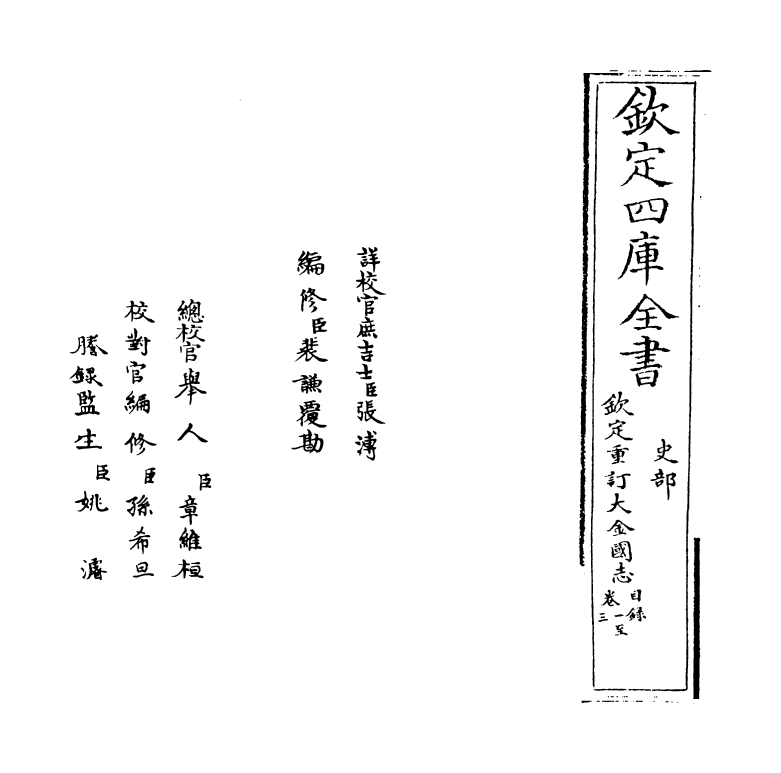 欽定四庫全書
史部
欽定重訂大金國志
目錄
卷一至
三
詳校官庶吉士臣張溥
編修臣裴謙覆勘
總校官舉人臣章維桓
校對官編修臣孫希旦
謄錄監生臣姚濬